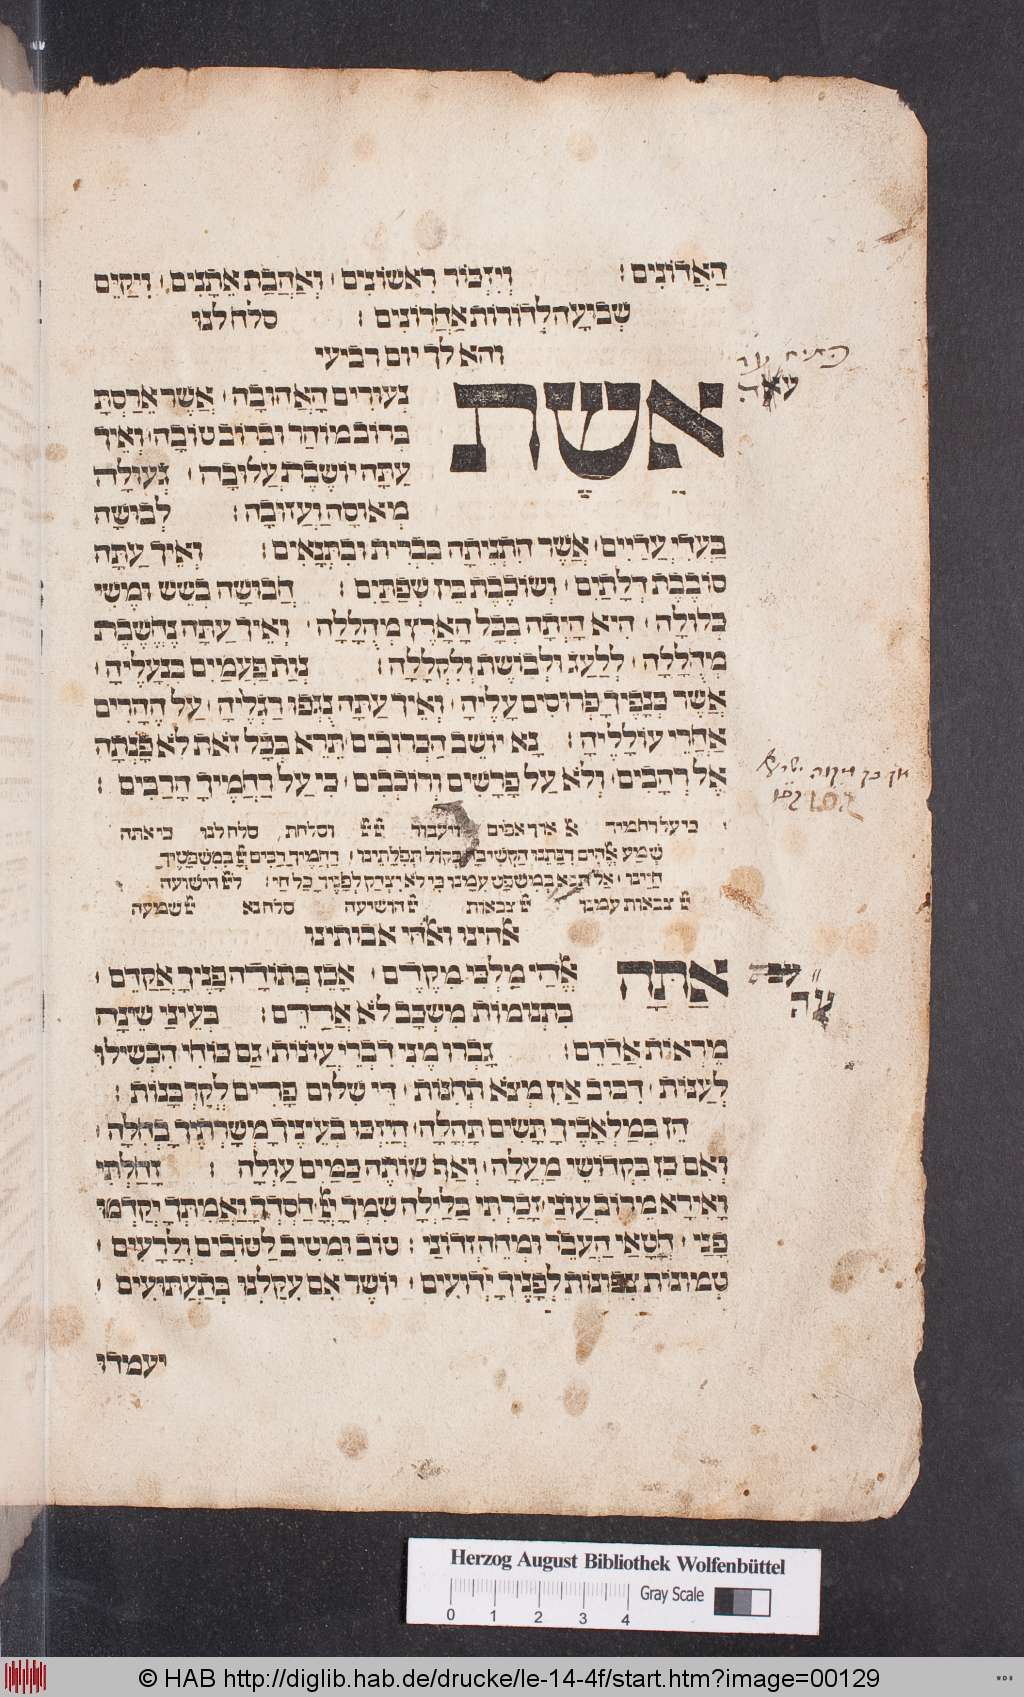 הָאֲדוֹנִים׃ וְיִזְכּוֹר רִאשׁוֹנִים׳ וְאַהֲבַת אֵתָנִים׳ וִיקַיֵּם
שְׁבוּעָה לְדוֹרוֹת אַחֲרוֹנִים׃ סלח לנו
והא לך יום רביעי
אֵשֶׁת נְעוּרִים הָאֲהוּבָה׳ אֲשֶׁר אֵרַסְתָּ
בְּרוֹב מוֹהַר וּבְרוֹב טוֹבָה׳ וְאֵיךְ
עַתָּה יוֹשֶׁבֶת עֲלוּבָה׳ גְּעוּלָה
מְאוּסָה וַעֲזוּבָה׃ לְבוּשָׁה
בַּעֲדִי עֲדָיִים׳ אֲשֶׁר הִתְנֵיתָה בִּבְרִית וּבִתְנָאִים׃ וְאֵיךְ עַתָּה
סוֹבֶבֶת דְּלָתַיִם׳ וְשׁוֹכֶבֶת בֵּין שְׁפַתַּיִם׃ חֲבוּשָׁה בְּשֵׁשׁ וּמֶשִׁי
כְּלוּלָה׳ הִיא הָיְתָה בְּכָל הָאָרֶץ מְהֻלָּלָה׳ וְאֵיךְ עַתָּה נֶחֱשֶׁבֶת
מְחֻלָּלָה׳ לְלַעַג וּלְבוֹשֶׁת וְלִקְלָלָה׃ נְוַת פַּעֲמַיִם בִּנְעָלֶיהָ׳
אֲשֶׁר כְּנָפֶיךָ פְּרוּסִים עָלֶיהָ׳ וְאֵיךְ עַתָּה נֻגְּפוּ רַגְלֶיהָ׳ עַל הֶהָרִים
אַחֲרֵי עוֹלָלֶיהָ׃ נָא יוֹשֵׁב הַכְּרוּבִים תֵּרֶא בְּכָל זֹאת לֹא פָּנְתָה
אֶל רְהָבִים׳ וְלֹא עַל פָּרָשִׁים וְרוֹכְבִים׳ כִּי עַל רַחֲמֶיךָ הָרַבִּים׃
כי על רחמיך אל ארך אפים ויעבור יי יי וסלחת סלח לנו כי אתה
שְׁמַע אֱלֹהִים
חיינו׳ אַל תָּבֹא בְמִשְׁפָּט עִמָּנוּ כִּי לֹא יִצְדַּק לְפָנֶיךָ כָּל חָי׃ ליי הישועה
יי צבאות עמנו יי צבאות יי הושיעה סלח נא יי שמעה
אלהינו ואלהי אבותינו
אַתָּה אֱלֹהַי מַלְכִּי מִקֶּדֶם׳ אָבֹן בְּתוֹדָה פָּנֶיךָ אֲקַדֵּם׳
בִּתְנוּמוֹת מִשְׁכָּב לֹא אֵרָדֵם׃ בְּעֵינַי שֵׁינָה
מֵרְאוֹת אֵרָדֵם׃ גָּבְרוּ מֶנִּי דִּבְרֵי עֲוֹנוֹת׳ גַּם כּוֹחִי הִכְשִׁילוּ
לַעֲנוֹת׳ דִּבּוּב אַיִן מְצֹא תְחִנּוֹת׳ דֵּי שִׁלּוּם פָּרִים לְקָרְבָּנוֹת׃
הֵן בְּמַלְאָכֶיךָ תָּשִׂים תָּהֳלָה׳ הֲיִזְכּוּ בְעֵינֶיךָ מְשָׁרְתֶיךָ
וְאִם כֵּן בִּקְדוֹשֵׁי מַעְלָה׳ וְאַף שׁוֹתֶה כַמַּיִם עַוְלָה׃ זָחַלְתִּי
וָאִירָא מֵרוֹב עֲוֹנַי׳ זָכַרְתִּי בַלַּיְלָה שִׁמְךָ יְיָ חַסְדְּךָ וַאֲמִתְּךָ יְקַדְּמוּ
פָנַי׳ חֲטָאַי הַעֲבֵר וּמְחֵה זְדוֹנַי׃ טוֹב וּמֵטִיב לַטּוֹבִים וְלָרָעִים׳
טְמוּנוֹת צְפוּנוֹת לְפָנֶיךָ יְדוּעִים׳ יוֹשֶׁר אִם עִקַּלְנוּ כְּתַעְתּוּעִים׃
יעמדו
Herzog August Bibliothek Wolfenbüttel
0 1 2 3 4 Gray Scale
© HAB http://diglib.hab.de/drucke/le-14-4f/start.htm?image=00129